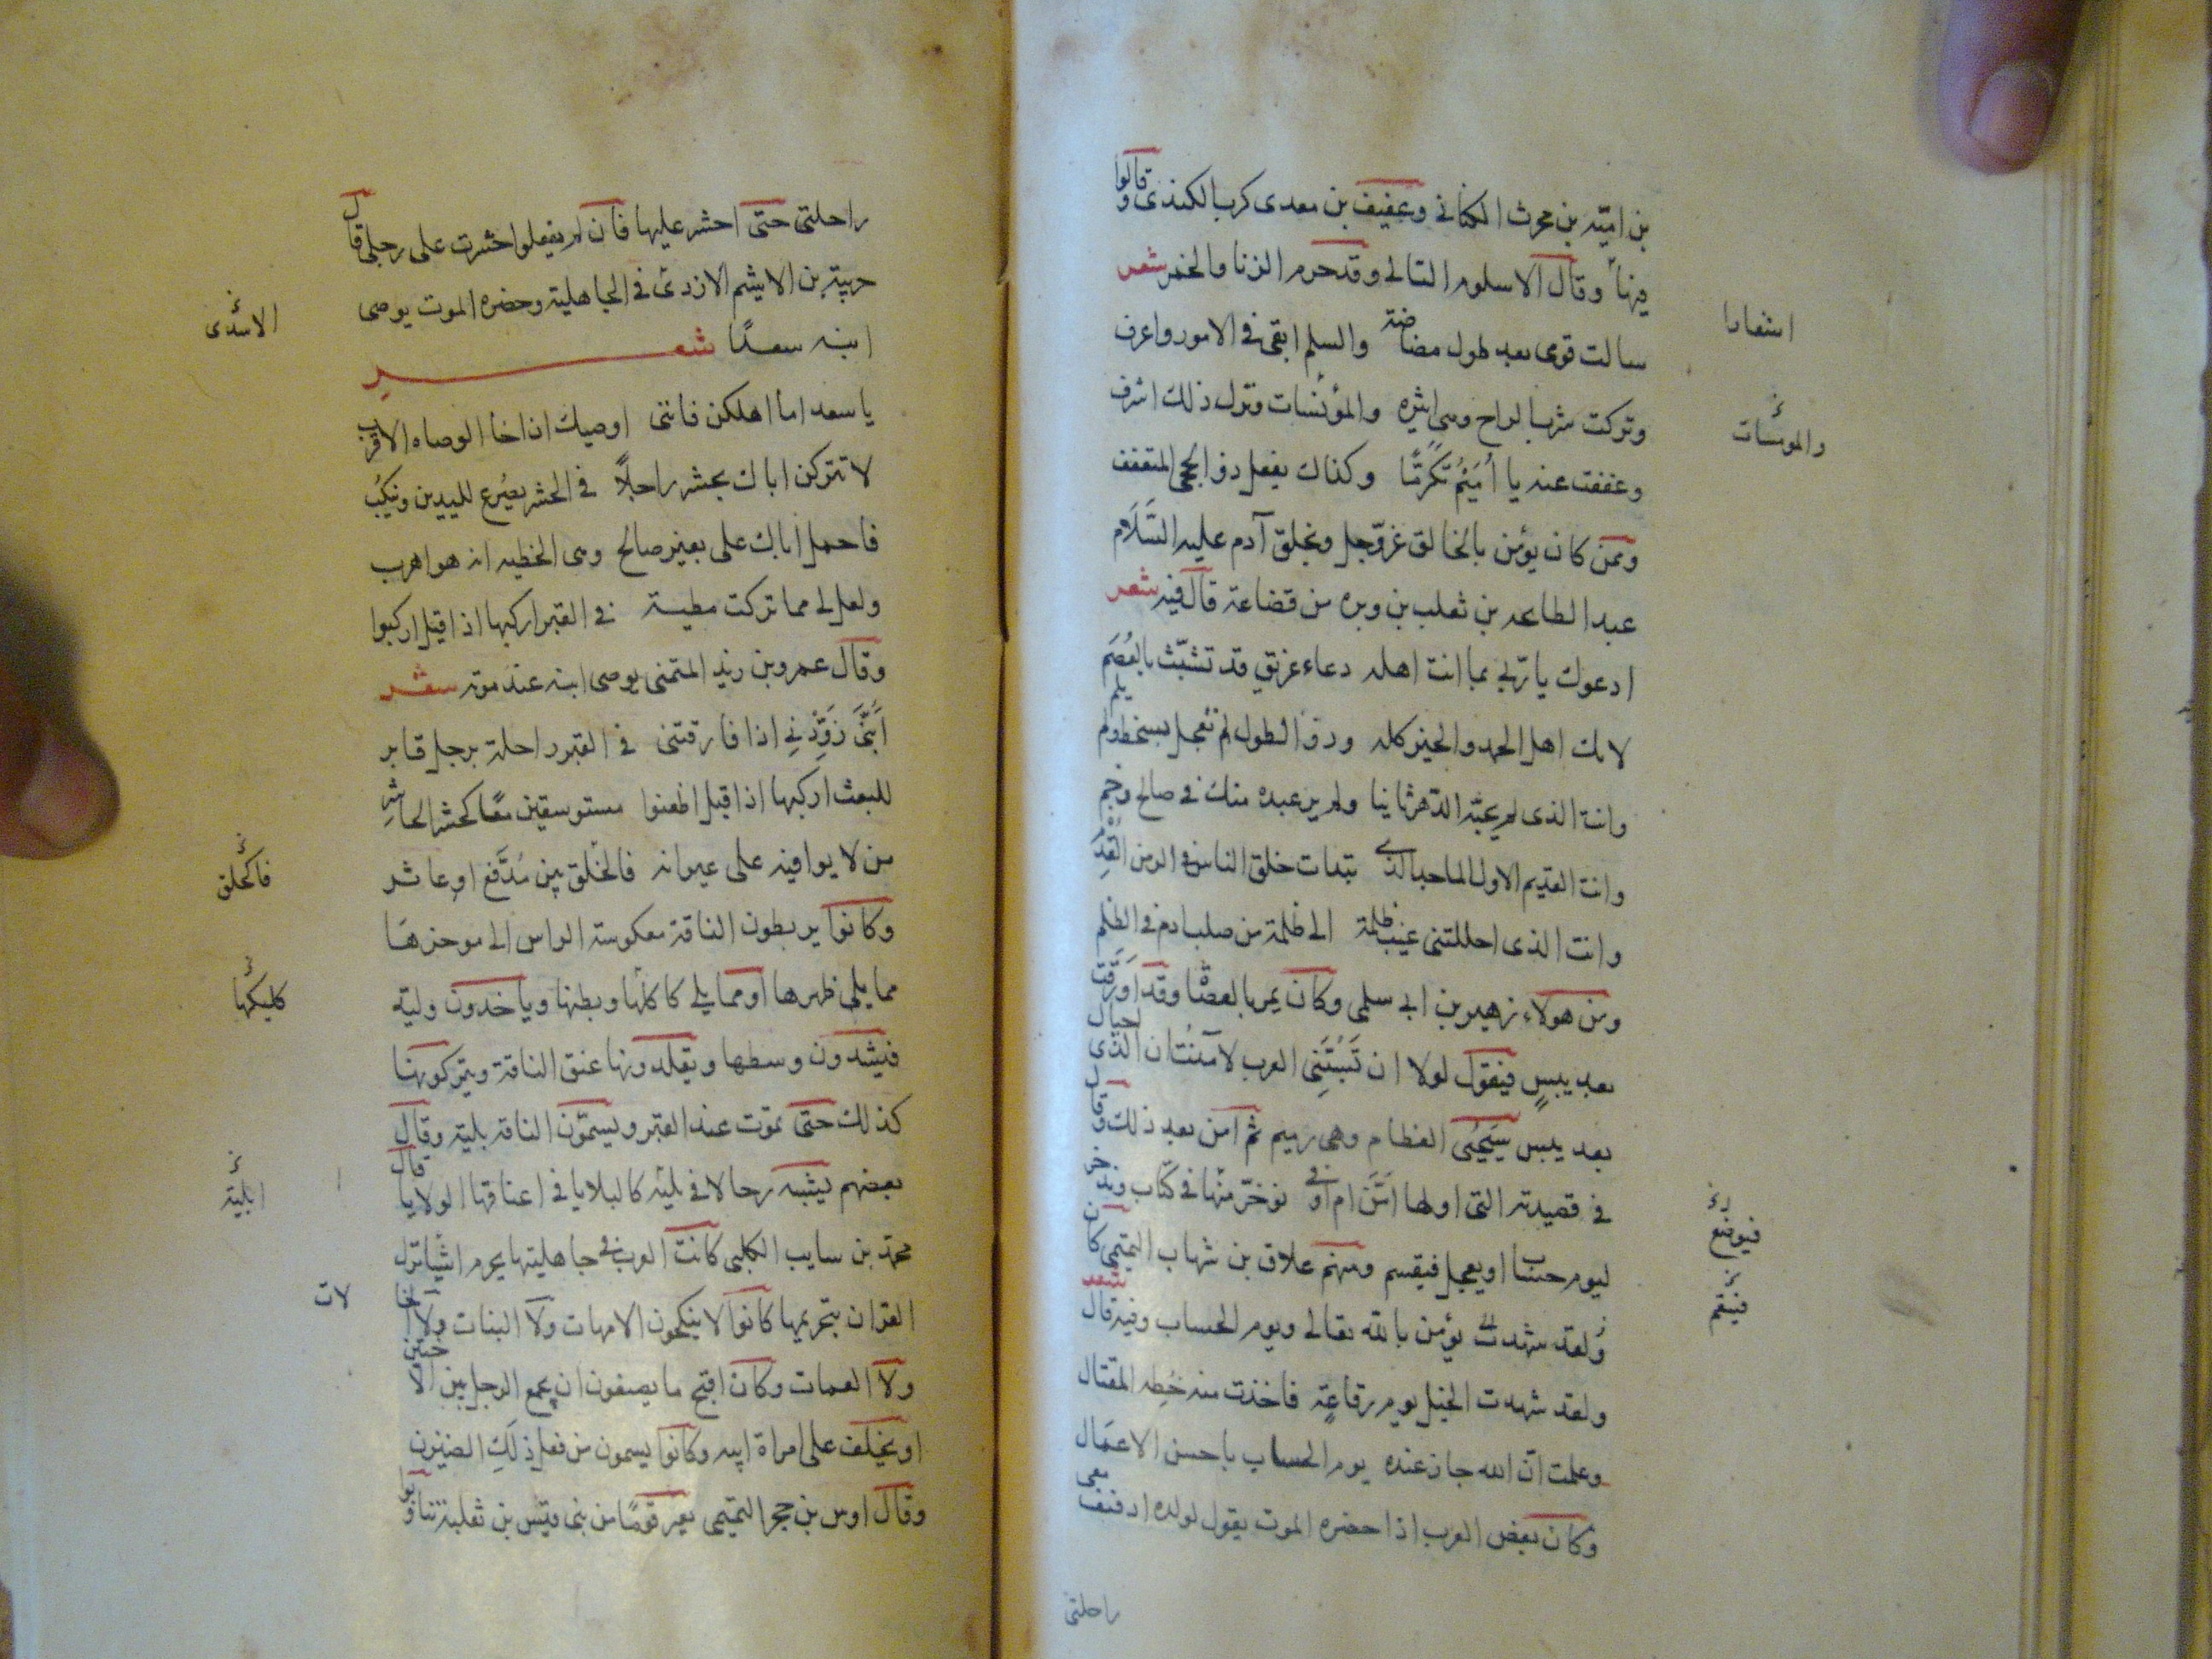 بن امية بن محرث الكناني وعفيف بن معدى كرب الكندى وقالوا
فيها وقال الاسلوم التالى وقد حرم الزنا والخمر شعر
اشعارا
سالت قومى بعد طول مضاضة والسلم ابقى فى الامور واعرف
وتركت شرب الراح وهى اثيره والمؤنسات وترك ذلك اشرف
والمومسات
وعففت عنه يا أميم تكرما وكذاك يفعل ذو الحجى المتعفف
وممن كان يؤمن بالخالق عز وجل وبخلق آدم عليه السلام
عبد الطابحه بن ثعلب بن وبره من قضاعة قال فيه شعر
ادعوك يا ربى بما انت اهله دعاء غريق قد تشبث بالعصم
لانك اهل الحمد والخير كله وذو الطول لم تعجل بسخط ولم يلم
وانت الذى لم يحيه الدهر ثانيا ولم ير عبده منك فى صالح وجم
وانت القديم الاول الماجد الذى تبدات خلق الناس فى الزمن القدم
وانت الذى احللتنى غيب ظلمة الى ظلمة من صلب ادم فى الظلم
ومن هولاء زهير بن ابى سلمى وكان يمر بالعضاه وقد اورقت
بعد يبس فيقول لولا ان تسبني العرب لآمنت ان الذى احياك
بعد يبس سيحيى العظام وهى رميم ثم امن بعد ذلك وقال
فى قصيدته التى اولها امن ام اوفى نوخر منها فى كتاب ويدخر
فيوضع
ليوم حساب او يعجل فيقسم ومنهم علاق بن شهاب التميمى كان
فينقم
يؤمن بالله تعالى ويوم الحساب وفيه قال شعر
ولقد شهدت الخيل يوم رقاعة فاخذت منه خطه المقتال
وعلمت ان الله جاز عنده يوم الحساب باحسن الاعمال
وكان بعض العرب اذا حضره الموت يقول لولده ادفنو معى
راحلتى
راحلتى حتى احشر عليها فان لم يفعلوا حشرت على رجلى قال
حريبة بن الاشيم الازدى فى الجاهلية وحضره الموت يوصى
الاسدى
ابنه سعدا شعر
يا سعد اما اهلكن فاننى اوصيك ان اخا الوصاه الاقرب
لا تتركن اباك يحشر راجلا فى الحشر يصرع لليدين وينكب
فاحمل اباك على بعير صالح وهى الخطيه انه هو اهرب
ولعل لى مما تركت مطية فى القبر اركبها اذا قيل اركبوا
وقال عمرو بن زيد المتمنى يوصى ابنه عند موته شعر
أبنى زودنى اذا فارقتنى فى القبر راحلة برحل قابر
للبعث اركبها اذا قيل اظعنوا مستوسقين معا كحشر الحاشر
من لا يوافيه على عيرانه فالخلق بين مدفع او عاثر
فالخلق
وكانوا يربطون الناقة معكوسة الراس الى موخرها
مما يلى ظهرها او مما يلى كلكلها وبطنها وياخذون وليه
كلكها
فيشدون وسطها ويقلدونها عنق الناقة ويتركونها
كذلك حتى تموت عند القبر ويسمون الناقه بلية وقال
بعضهم يشبه رجالا فى بليه كالبلايا فى اعناقها الولايا قال
ابلية
محمد بن سايب الكلبى كانت العرب فى جاهليتها يحرم اشيا نزل
القران بتحريمها كانوا لا ينكحون الامهات ولا البنات ولا الخا
لات
ولا العمات وكان اقبح ما يصنعون ان يجمع الرجل بين الاختين
او يخلف على امراة ابيه وكانوا يسمون من فعل ذلك الضيزن
وقال اوس بن حجر التميمى يعير قوما من بنى قيس بن ثعلبة تناوبوا